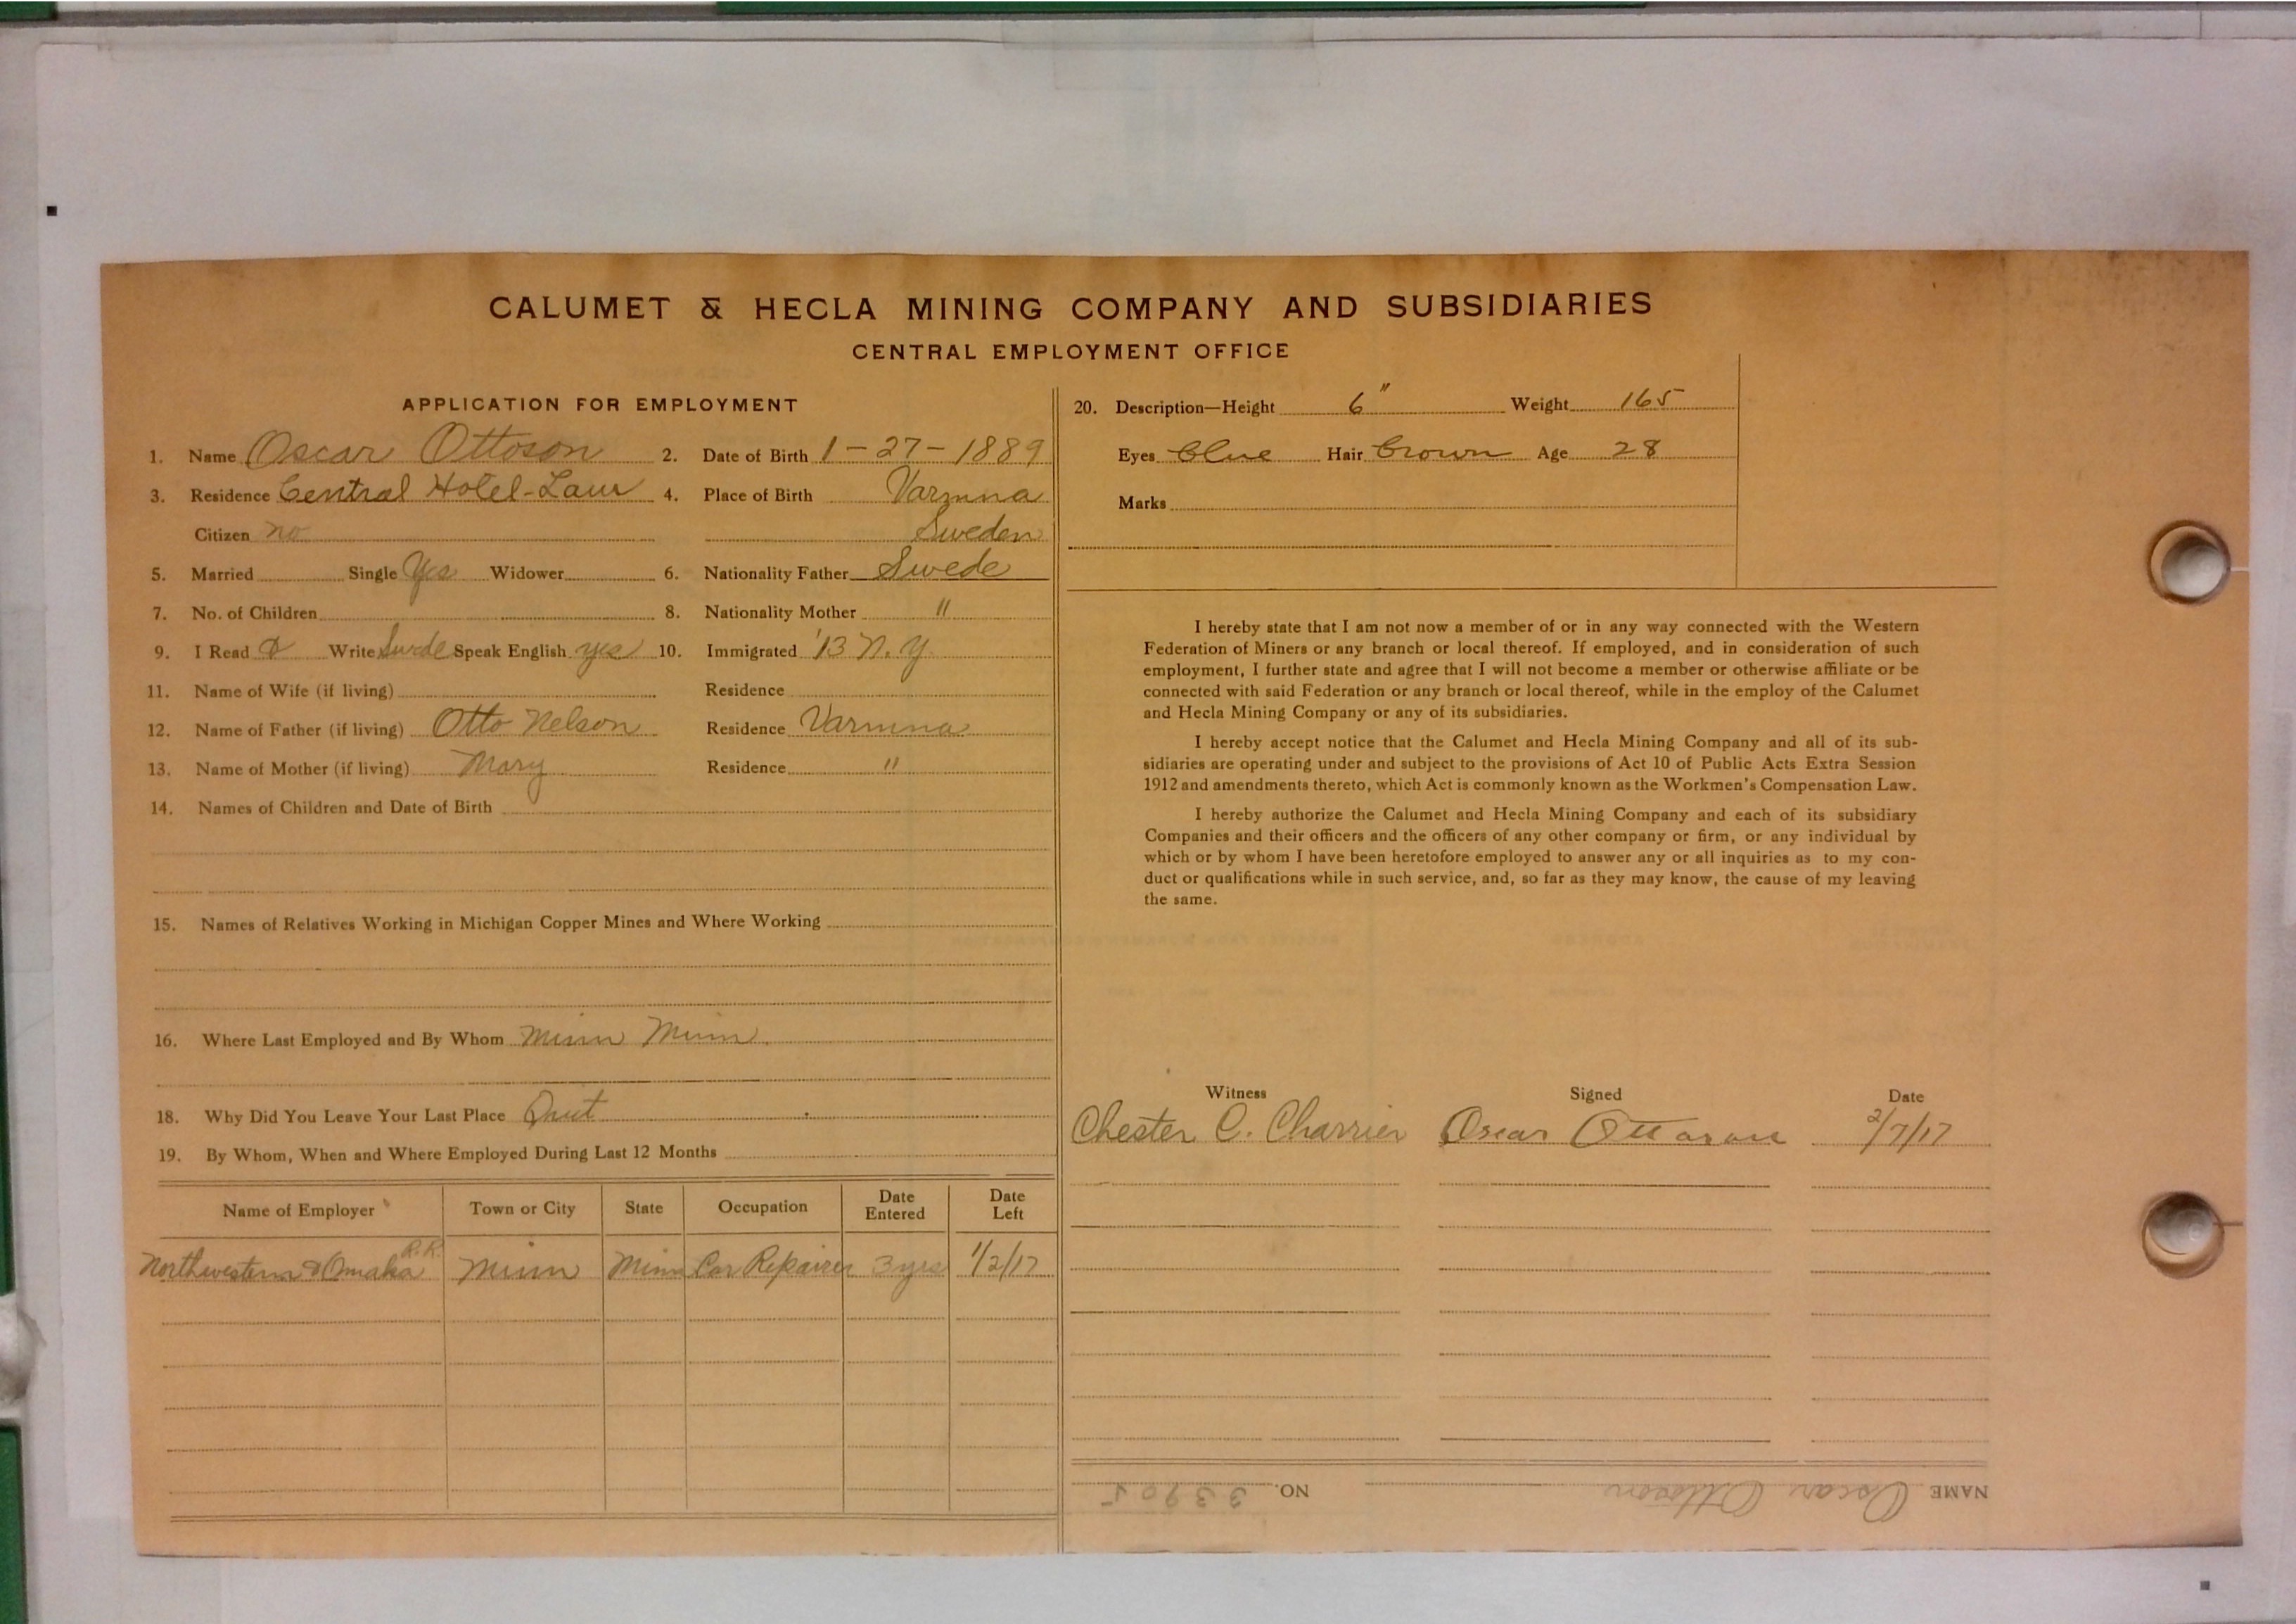 CALUMET & HECLA MINING COMPANY AND SUBSIDIARIES
CENTRAL EMPLOYMENT OFFICE
APPLICATION FOR EMPLOYMENT
1. Name Oscar Ottoson 2. Date of Birth 1-27-1889
3. Residence Central Hotel-Laur 4. Place of Birth Varmna
Citizen no Sweden
5. Married Single Yes Widower 6. Nationality Father Swede
7. No. of Children 8. Nationality Mother "
9. I Read & Write Swede Speak English yes 10. Immigrated '13 N.Y.
11. Name of Wife (if living) Residence
12. Name of Father (if living) Otto Nelson Residence Varmna
13. Name of Mother (if living) Mary Residence "
14. Names of Children and Date of Birth
15. Names of Relatives Working in Michigan Copper Mines and Where Working
16. Where Last Employed and By Whom Minn Minn.
18. Why Did You Leave Your Last Place Quit
19. By Whom, When and Where Employed During Last 12 Months
Name of Employer Town or City State Occupation Date Entered Date Left
Northwestern & Omaha R.R. Minn Minn Car Repairer 3 yrs 1/2/17
20. Description—Height 6" Weight 165
Eyes Blue Hair Brown Age 28
Marks
I hereby state that I am not now a member of or in any way connected with the Western
Federation of Miners or any branch or local thereof. If employed, and in consideration of such
employment, I further state and agree that I will not become a member or otherwise affiliate or be
connected with said Federation or any branch or local thereof, while in the employ of the Calumet
and Hecla Mining Company or any of its subsidiaries.
I hereby accept notice that the Calumet and Hecla Mining Company and all of its sub-
sidiaries are operating under and subject to the provisions of Act 10 of Public Acts Extra Session
1912 and amendments thereto, which Act is commonly known as the Workmen's Compensation Law.
I hereby authorize the Calumet and Hecla Mining Company and each of its subsidiary
Companies and their officers and the officers of any other company or firm, or any individual by
which or by whom I have been heretofore employed to answer any or all inquiries as to my con-
duct or qualifications while in such service, and, so far as they may know, the cause of my leaving
the same.
Witness Signed Date
Chester C. Charrier Oscar Ottoson 2/7/17
NAME Oscar Ottoson NO. 33905